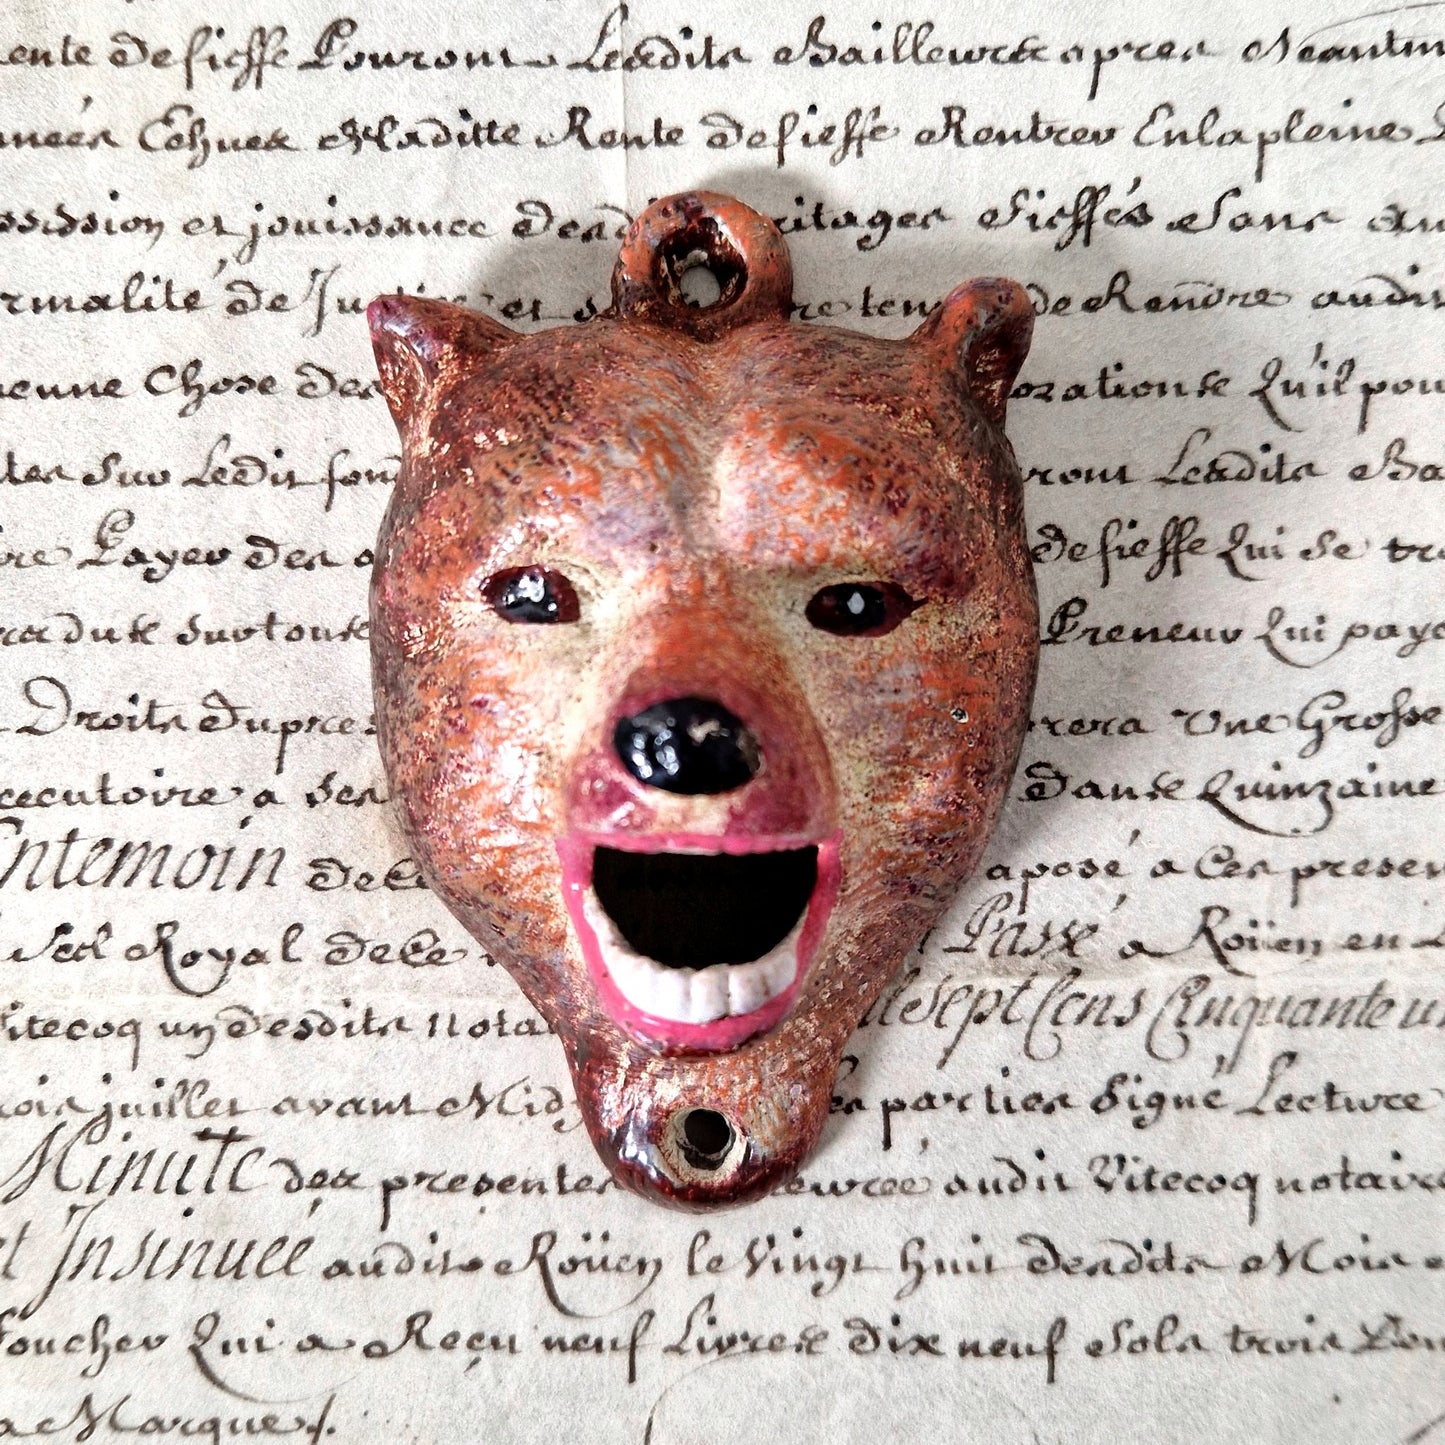 ente de fieffe Pouront Lesdits Bailleurs apres Neantm
nnées Echues de Laditte Rente de fieffe Rentrer En la pleine
ossession et jouissance desd itages fieffés Sans au
rmalité de Justice et s re ten de Rendre audit
ucune Chose des orations Qu'il pou
tes Sur Ledit fon ront Lesdits Ba
re Payer des a de fieffe Qui Se tr
dus Surtouts Preneur Qui paye
Droits du pres rera Une Grosse
xecutoire a Ses Dans Quinzaine
Entemoin de Ce aposé a Ces presen
Scel Royal de Ce Passé a Roüen en
Vitecoq un desdits Nota lsept Cens Cinquante u
ois juillet avant Midy es parties Signé Lecture
Minute des presentes eurée audit Vitecoq notaire
et Insinuée audit Roüen le Vingt huit desdits Mois
foucher Qui a Reçu neuf Livres dix neuf Sols trois
a Marque /.